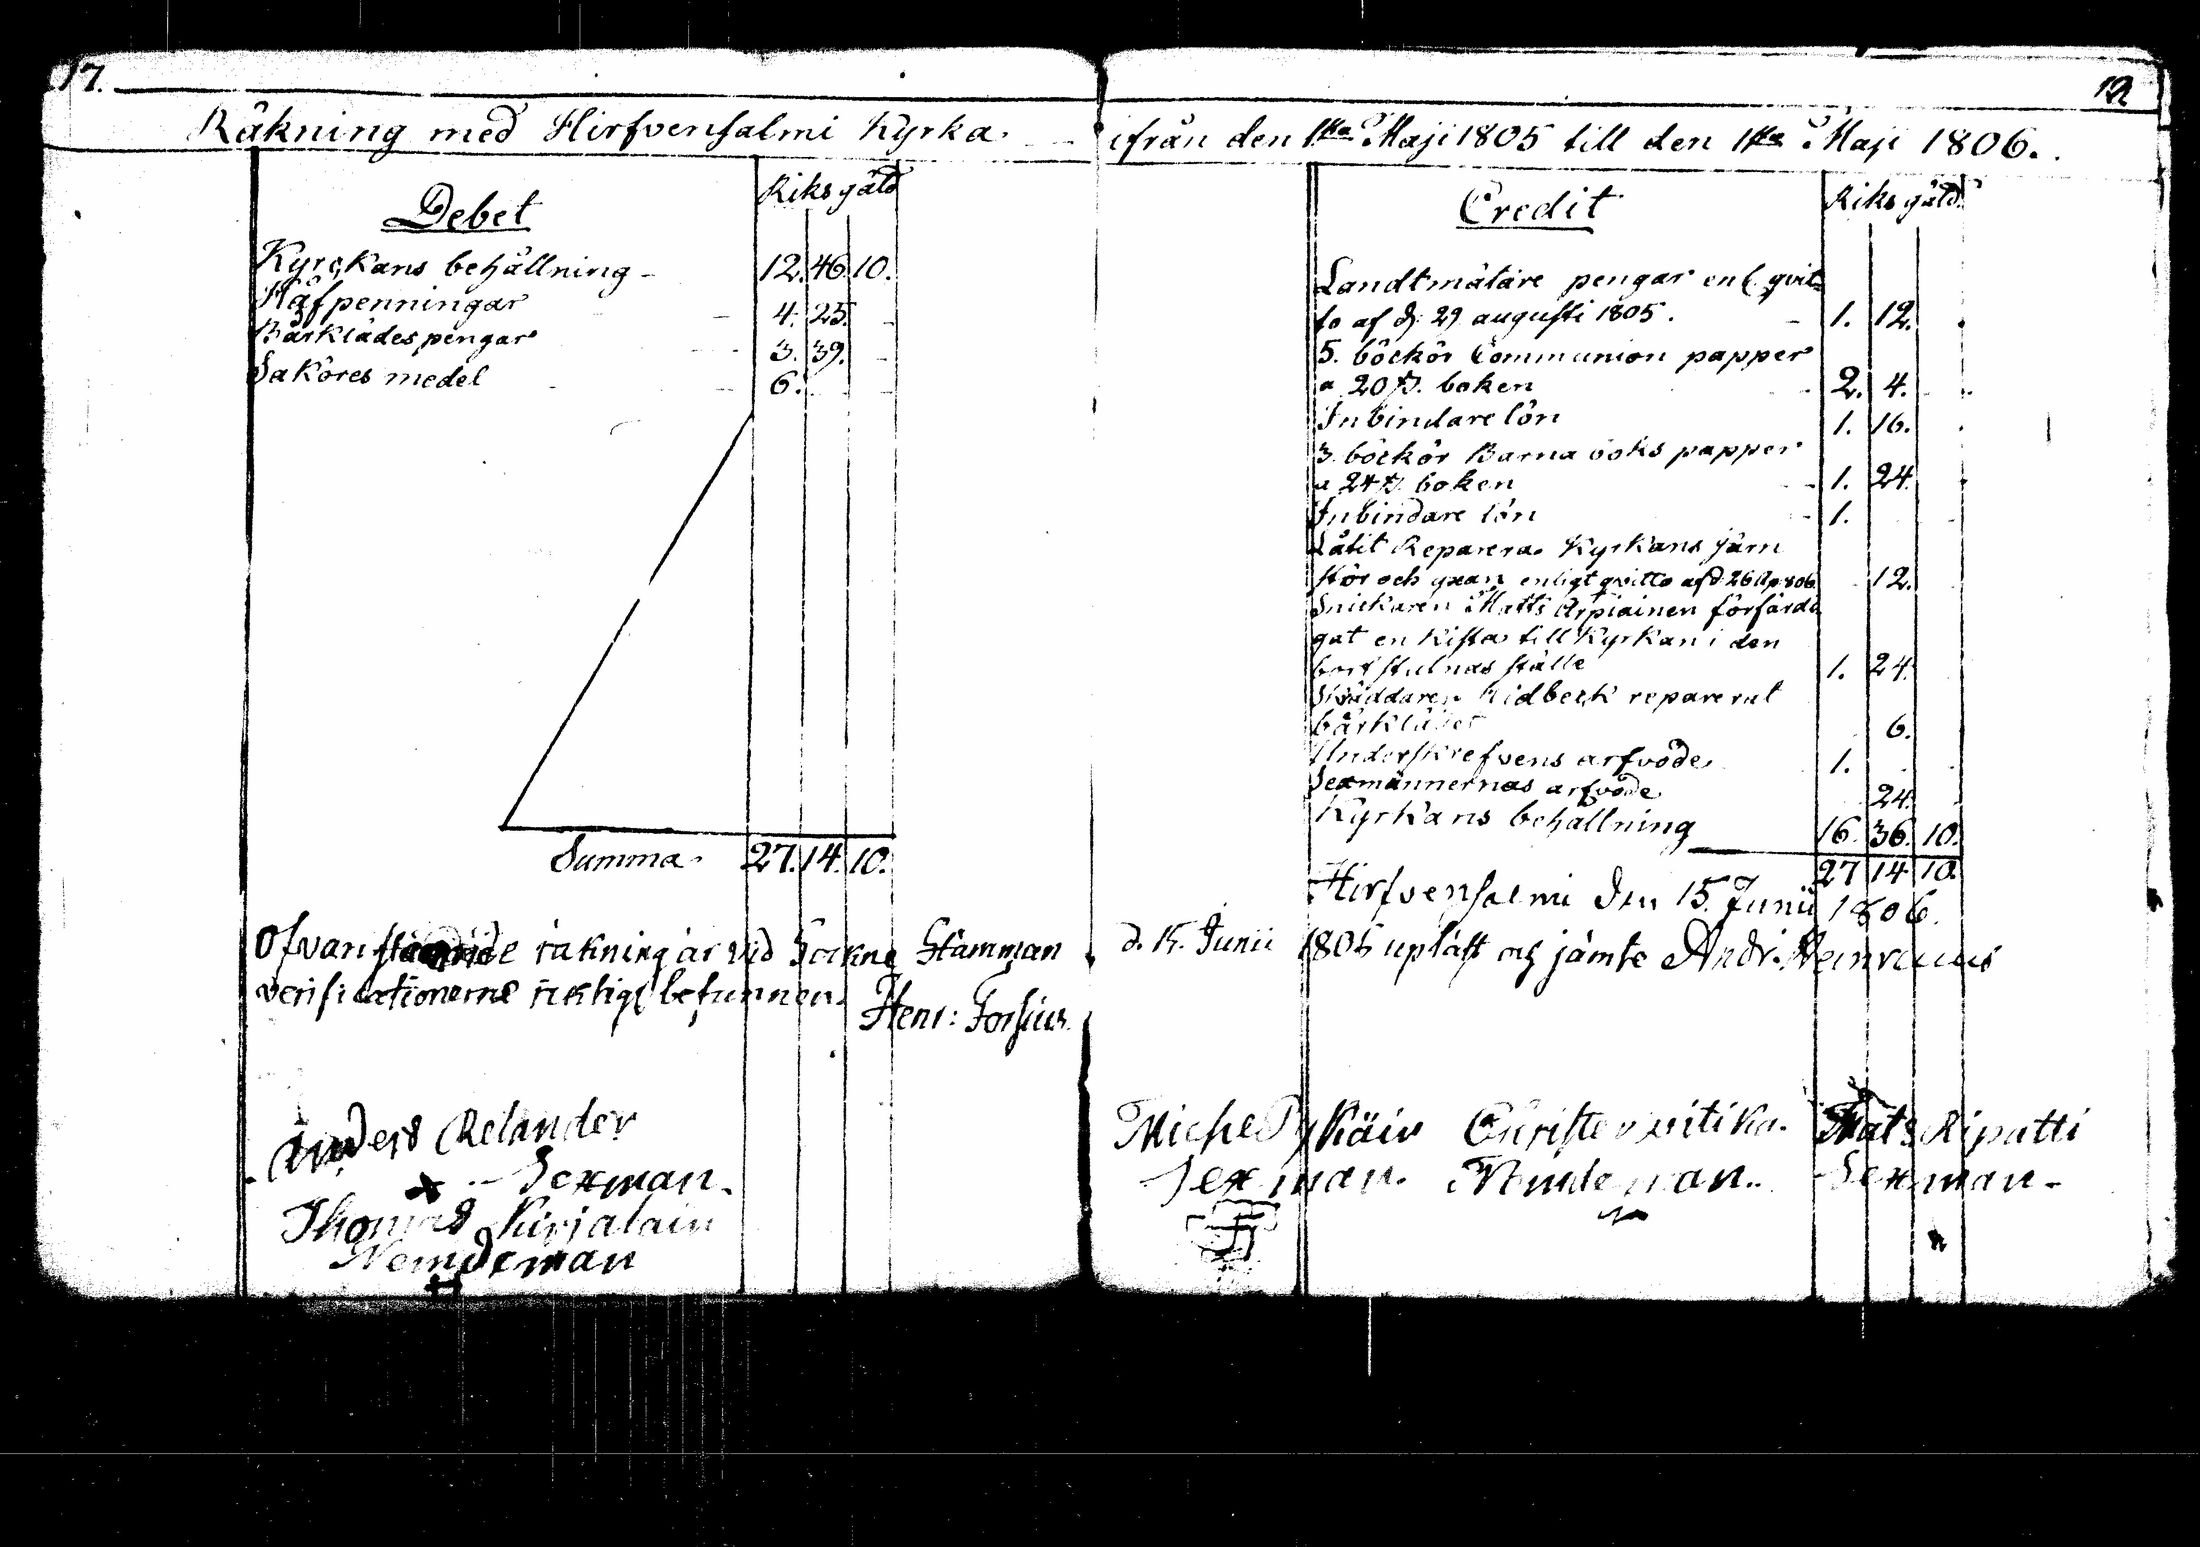 17.
Räkning med Hirfvensalmi Kyrka.
Debet
Riksgäld
Kyrckans behållning - 12. 46. 10.
Håfpenningar - 4. 25. -
Bårklädespengar - 3. 39. -
Saköres medel - 6. - -
Summa. 27. 14. 10.
Ofvanstående räkning är vid Sockne Stämman
verificationerne riktige befunnen.
Henr: Forsius.
Anders Relander
Sexman.
Thomas Kirjalain
Nemdeman
12
ifrån den 1sta Maji 1805 till den 1sta Maji 1806.
Credit
Riksgäld
Landtmätare pengar enl. qvit-
to af d. 29 augusti 1805. - 1. 12.
5. böckör Communion papper
a 20 s. boken 2. 4.
Inbindare lön 1. 16.
3. böckör Barna boks papper
a 24 s. boken 1. 24.
Inbindare lön 1.
Låtit Reparera Kyrkans järn
stör och enligt qvitto af d. 26 Ap. 806 12.
Snickaren Matts Arpiainen förfärdi
gat en Kista till Kyrkan i den
bortstulnas ställe 1. 24.
Skräddaren Lidbeck reparerat
bårklädet 6.
Underskrefvens arfvode 1.
Sexmännernas arfvode 24.
Kyrkans behållning 16. 36. 10.
27 14 10.
Hirfvensalmi den 15. Junii 1806.
d. 15. Junii 1806 upläst och jämte Andr.
Michel Pykäin Christer vitika. Mats Ripatti
Sexman. Nemdeman. Sexman-